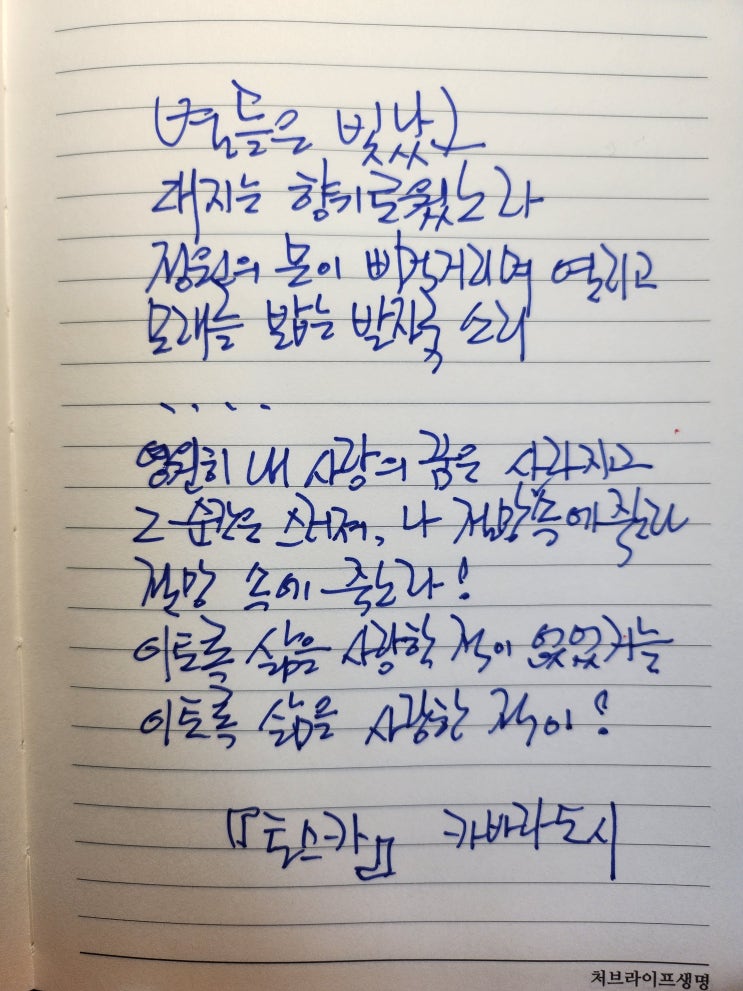 (별들은 빛났고)
대지는 향기로웠노라
정원의 문이 삐걱거리며 열리고
모래를 밟는 발자국 소리
....
영원히 내 사랑의 꿈은 사라지고
그 순간은 스러져, 나 절망속에 죽노라
절망 속에 죽노라!
이토록 삶을 사랑한 적이 없었거늘
이토록 삶을 사랑한 적이!
『토스카』 카바라도시
처브라이프생명